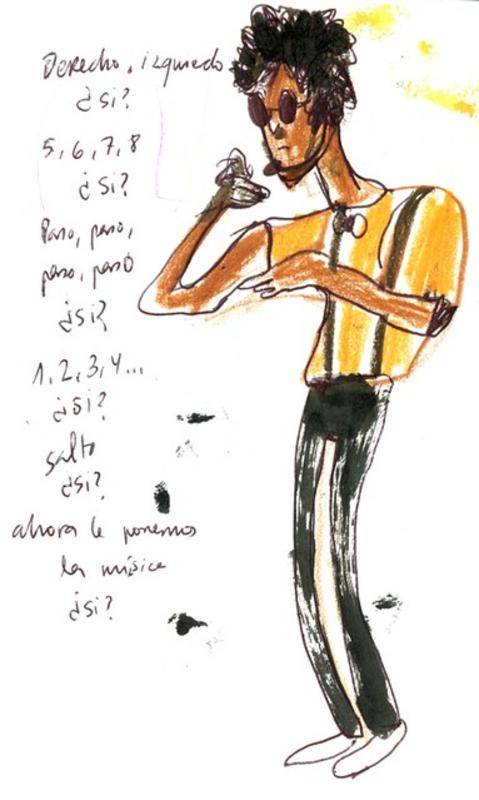 Derecho, izquierdo
¿si?
5, 6, 7, 8
¿si?
Paso, paso,
paso, paso
¿si?
1, 2, 3, 4...
¿si?
salto
¿si?
ahora le ponemos
la música
¿si?